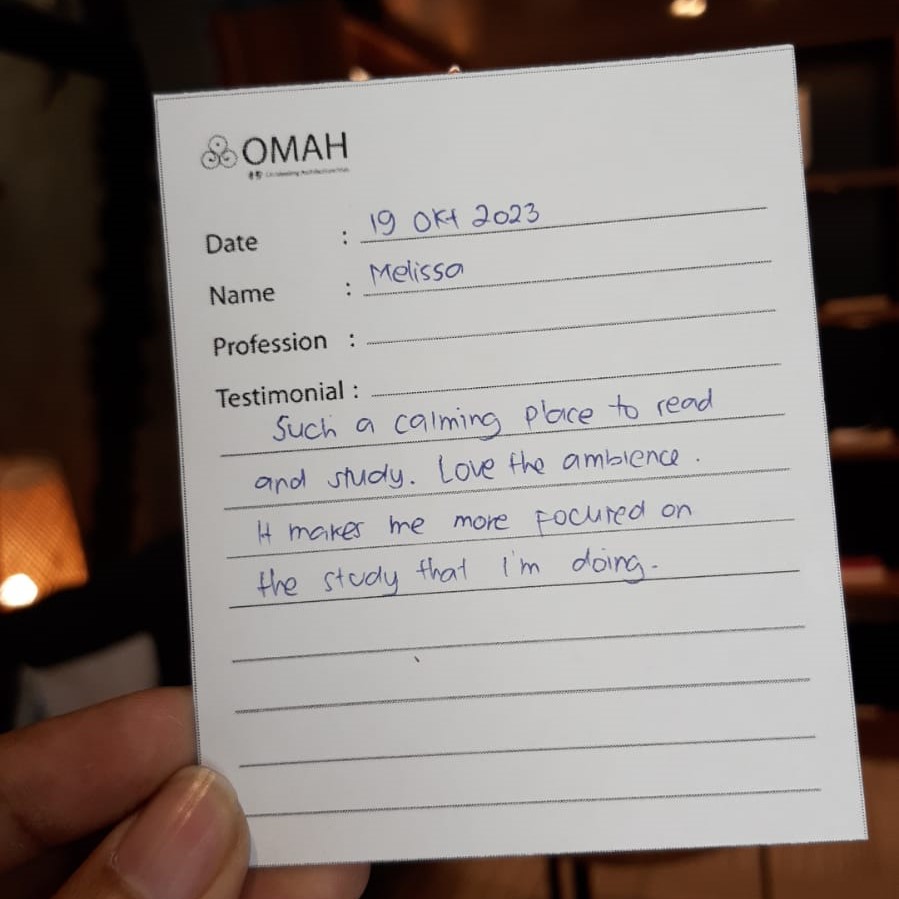 OMAH
Date : 19 Okt 2023
Name : Melissa
Profession :
Testimonial :
Such a calming place to read
and study. Love the ambience.
It makes me more focused on
the study that I'm doing.